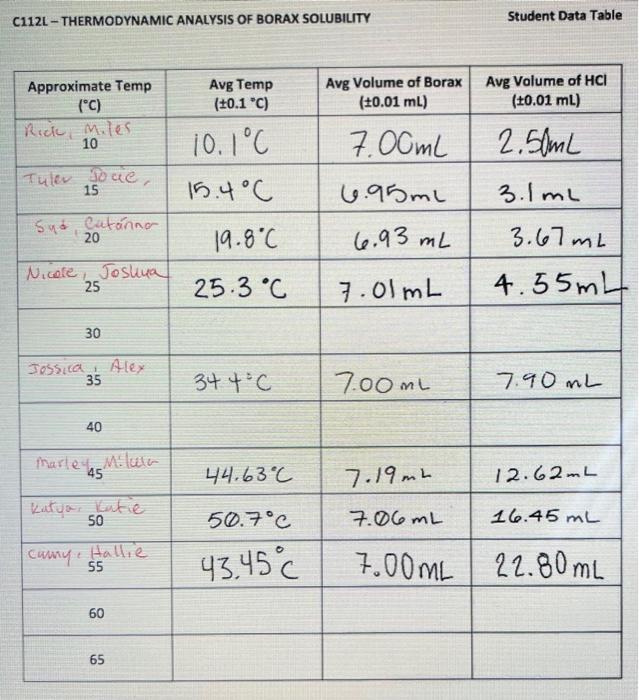 C112L – THERMODYNAMIC ANALYSIS OF BORAX SOLUBILITY Student Data Table
Approximate Temp (°C) Avg Temp (±0.1 °C) Avg Volume of Borax (±0.01 mL) Avg Volume of HCl (±0.01 mL)
Rick, Miles
10 10.1°C 7.00mL 2.50mL
Tyler
15 15.4°C 6.95mL 3.1mL
Syd,
20 19.8°C 6.93 mL 3.67mL
Nicole, Joshua
25 25.3°C 7.01mL 4.55mL
30
Jessica, Alex
35 34 4°C 7.00mL 7.90mL
40
Marley,
45 44.63°C 7.19mL 12.62mL
Katya, Katie
50 50.7°C 7.06mL 16.45mL
Hallie
55 43.45°C 7.00mL 22.80mL
60
65